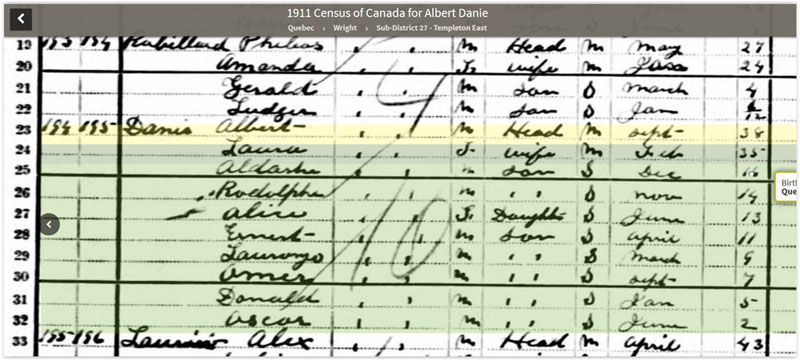 1911 Census of Canada for Albert Danie
Quebec › Wright › Sub-District 27 - Templeton East
19 193 194 Robillard Phileas " " m Head m may 27
20 Amanda " " F wife m 24
21 Gerald " " m son S march 4
22 Ludger " " m son S Jan
23 194 195 Danis Albert " " m Head m sept 38
24 Laura " " F wife m Feb 35
25 " " m son S Dec 16
26 Rodolphe " " m " " S nov 14
27 Alice " " F Daughter S June 13
28 Ernest " " m son S april 11
29 " " m " " S march 9
30 Omer " " m " " S sept 7
31 Donald " " m " " S Jan 5
32 Oscar " " m " " S June 2
33 195 196 Alex " " m Head m april 43
10
Birt
Que